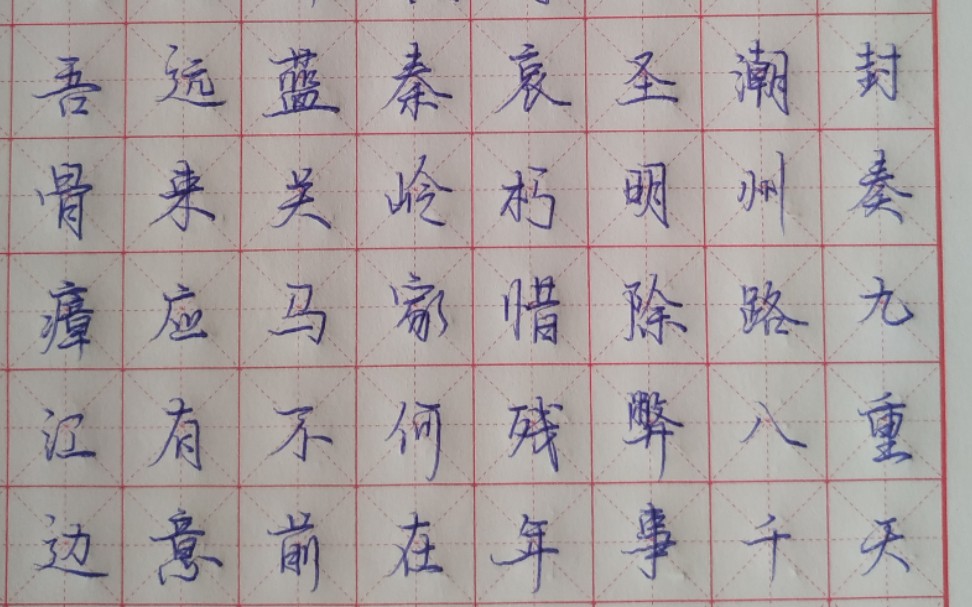 封奏九重天
潮州路八千
圣明除弊事
衰朽惜残年
秦岭家何在
蓝关马不前
远来应有意
吾骨瘴江边